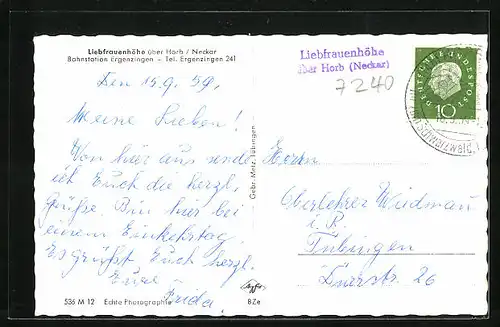 Liebfrauenhöhe über Horb / Neckar
Bahnstation Ergenzingen - Tel. Ergenzingen 241
Den 15.9.59.
Meine Lieben!
Von hier aus sende
ich Euch die herzl.
Grüße. Bin hier bei
einem Einkehrtag.
Es grüßt Euch herzl.
Eure
Frida.
536 M 12 Echte Photographie
Gebr. Metz, Tübingen
BZe
Liebfrauenhöhe
über Horb (Neckar)
7240
DEUTSCHE BUNDESPOST
10
Herrn
Oberlehrer Widmau
i. R.
Tübingen
26